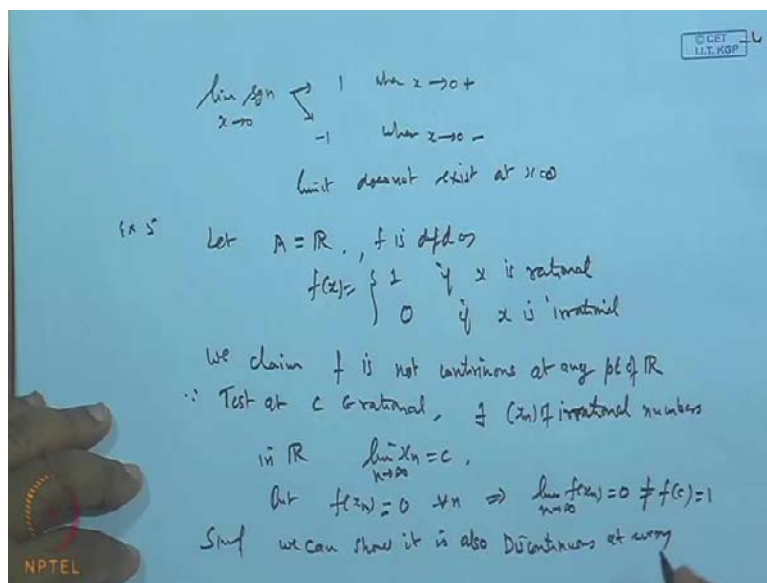 © CET
I.I.T. KGP
lim sgn → 1 when x→0+
x→0
-1 when x→0-
limit does not exist at x=0
Ex 5 Let A = ℝ., f is dfd as
f(x) = { 1 if x is rational
0 if x is irrational
We claim f is not continuous at any pt of ℝ
∵ Test at c rational, ∃ (xn) of irrational numbers
in ℝ lim xn = c,
n→∞
But f(xn) = 0 ∀n ⇒ lim f(xn) = 0 ≠ f(c) = 1
n→∞
we can show it is also Discontinuous at every
NPTEL